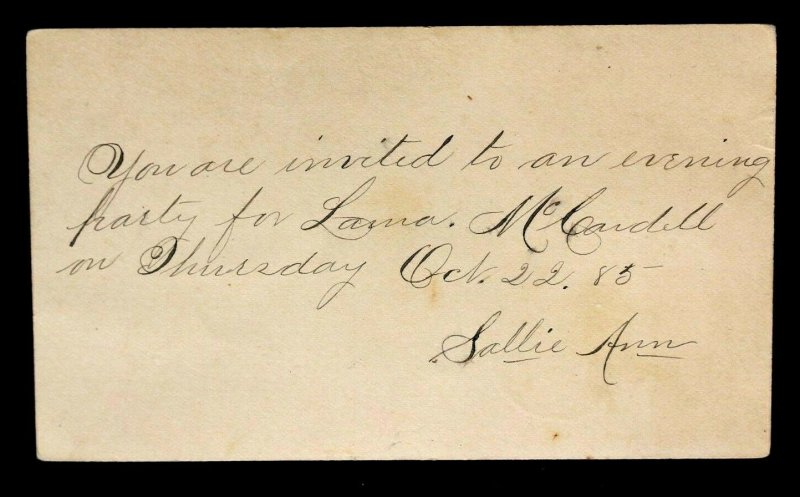 You are invited to an evening
party for Lama. McCardell
on Thursday Oct. 22. 85
Sallie Ann